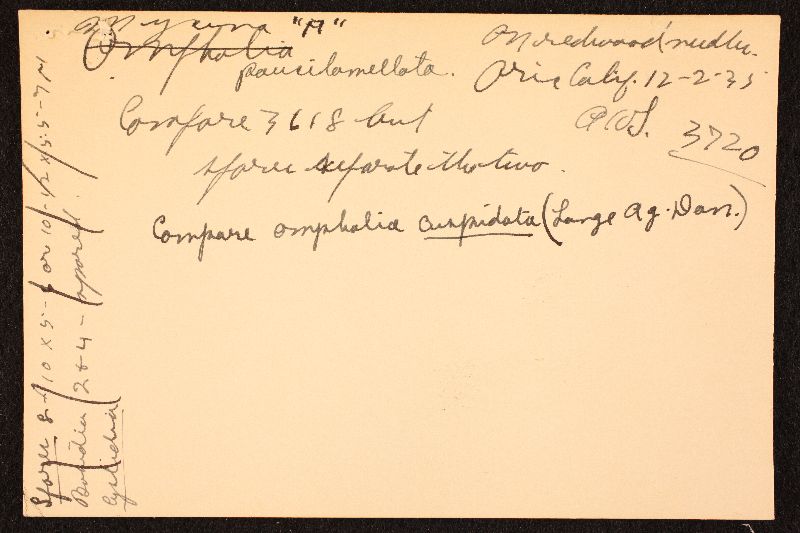 Mycena "A"
Omphalia
paucilamellata.
On redwood needles.
Oric Calif. 12-2-35
3720
Compare 3618 but
spores separate the two.
Compare omphalia cuspidata (Lange Ag. Dan.)
Spores 8-10 x 5-6 or 10-12 x 5.5-7 M
Basidia 2 & 4-spored.
Cystidia